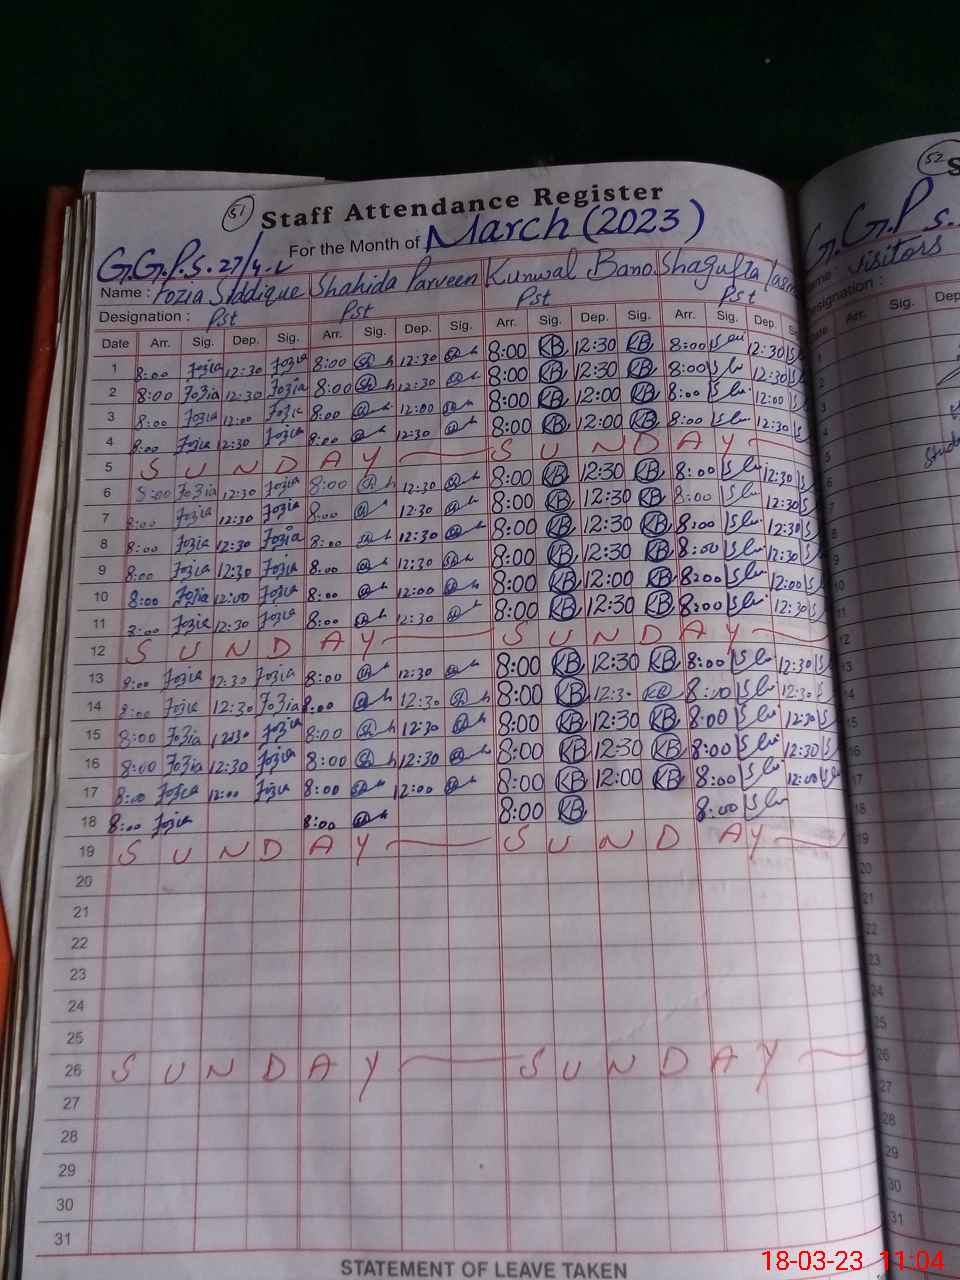 51 Staff Attendance Register
For the Month of March (2023)
G.G.P.S. 27/4-L
Name : Fozia Siddique Shahida Parveen Kunwal Bano Shagufta
Designation : Pst Pst Pst Pst
Date Arr. Sig. Dep. Sig. Arr. Sig. Dep. Sig. Arr. Sig. Dep. Sig. Arr. Sig. Dep.
1 8:00 Fozia 12:30 Fozia 8:00 12:30 8:00 KB 12:30 KB 8:00 12:30
2 8:00 Fozia 12:30 Fozia 8:00 12:30 8:00 KB 12:30 KB 8:00 12:30
3 8:00 Fozia 12:00 Fozia 8:00 12:00 8:00 KB 12:00 KB 8:00 12:00
4 8:00 Fozia 12:30 Fozia 8:00 12:30 8:00 KB 12:00 KB 8:00 12:30
5 S U N D A Y S U N D A Y
6 8:00 Fozia 12:30 Fozia 8:00 12:30 8:00 KB 12:30 KB 8:00 12:30
7 8:00 Fozia 12:30 Fozia 8:00 12:30 8:00 KB 12:30 KB 8:00 12:30
8 8:00 Fozia 12:30 Fozia 8:00 12:30 8:00 KB 12:30 KB 8:00 12:30
9 8:00 Fozia 12:30 Fozia 8:00 12:30 8:00 KB 12:30 KB 8:00 12:30
10 8:00 Fozia 12:00 Fozia 8:00 12:00 8:00 KB 12:00 KB 8:00 12:00
11 8:00 Fozia 12:30 Fozia 8:00 12:30 8:00 KB 12:30 KB 8:00 12:30
12 S U N D A Y S U N D A Y
13 8:00 Fozia 12:30 Fozia 8:00 12:30 8:00 KB 12:30 KB 8:00 12:30
14 8:00 Fozia 12:30 Fozia 8:00 12:30 8:00 KB 12:30 KB 8:00 12:30
15 8:00 Fozia 12:30 Fozia 8:00 12:30 8:00 KB 12:30 KB 8:00 12:30
16 8:00 Fozia 12:30 Fozia 8:00 12:30 8:00 KB 12:30 KB 8:00 12:30
17 8:00 Fozia 12:00 Fozia 8:00 12:00 8:00 KB 12:00 KB 8:00 12:00
18 8:00 Fozia 8:00 8:00 KB 8:00
19 S U N D A Y S U N D A Y
20
21
22
23
24
25
26 S U N D A Y S U N D A Y
27
28
29
30
31
STATEMENT OF LEAVE TAKEN
52
G.G.P.S.
Visitors
Arr. Sig.
18-03-23 11:04